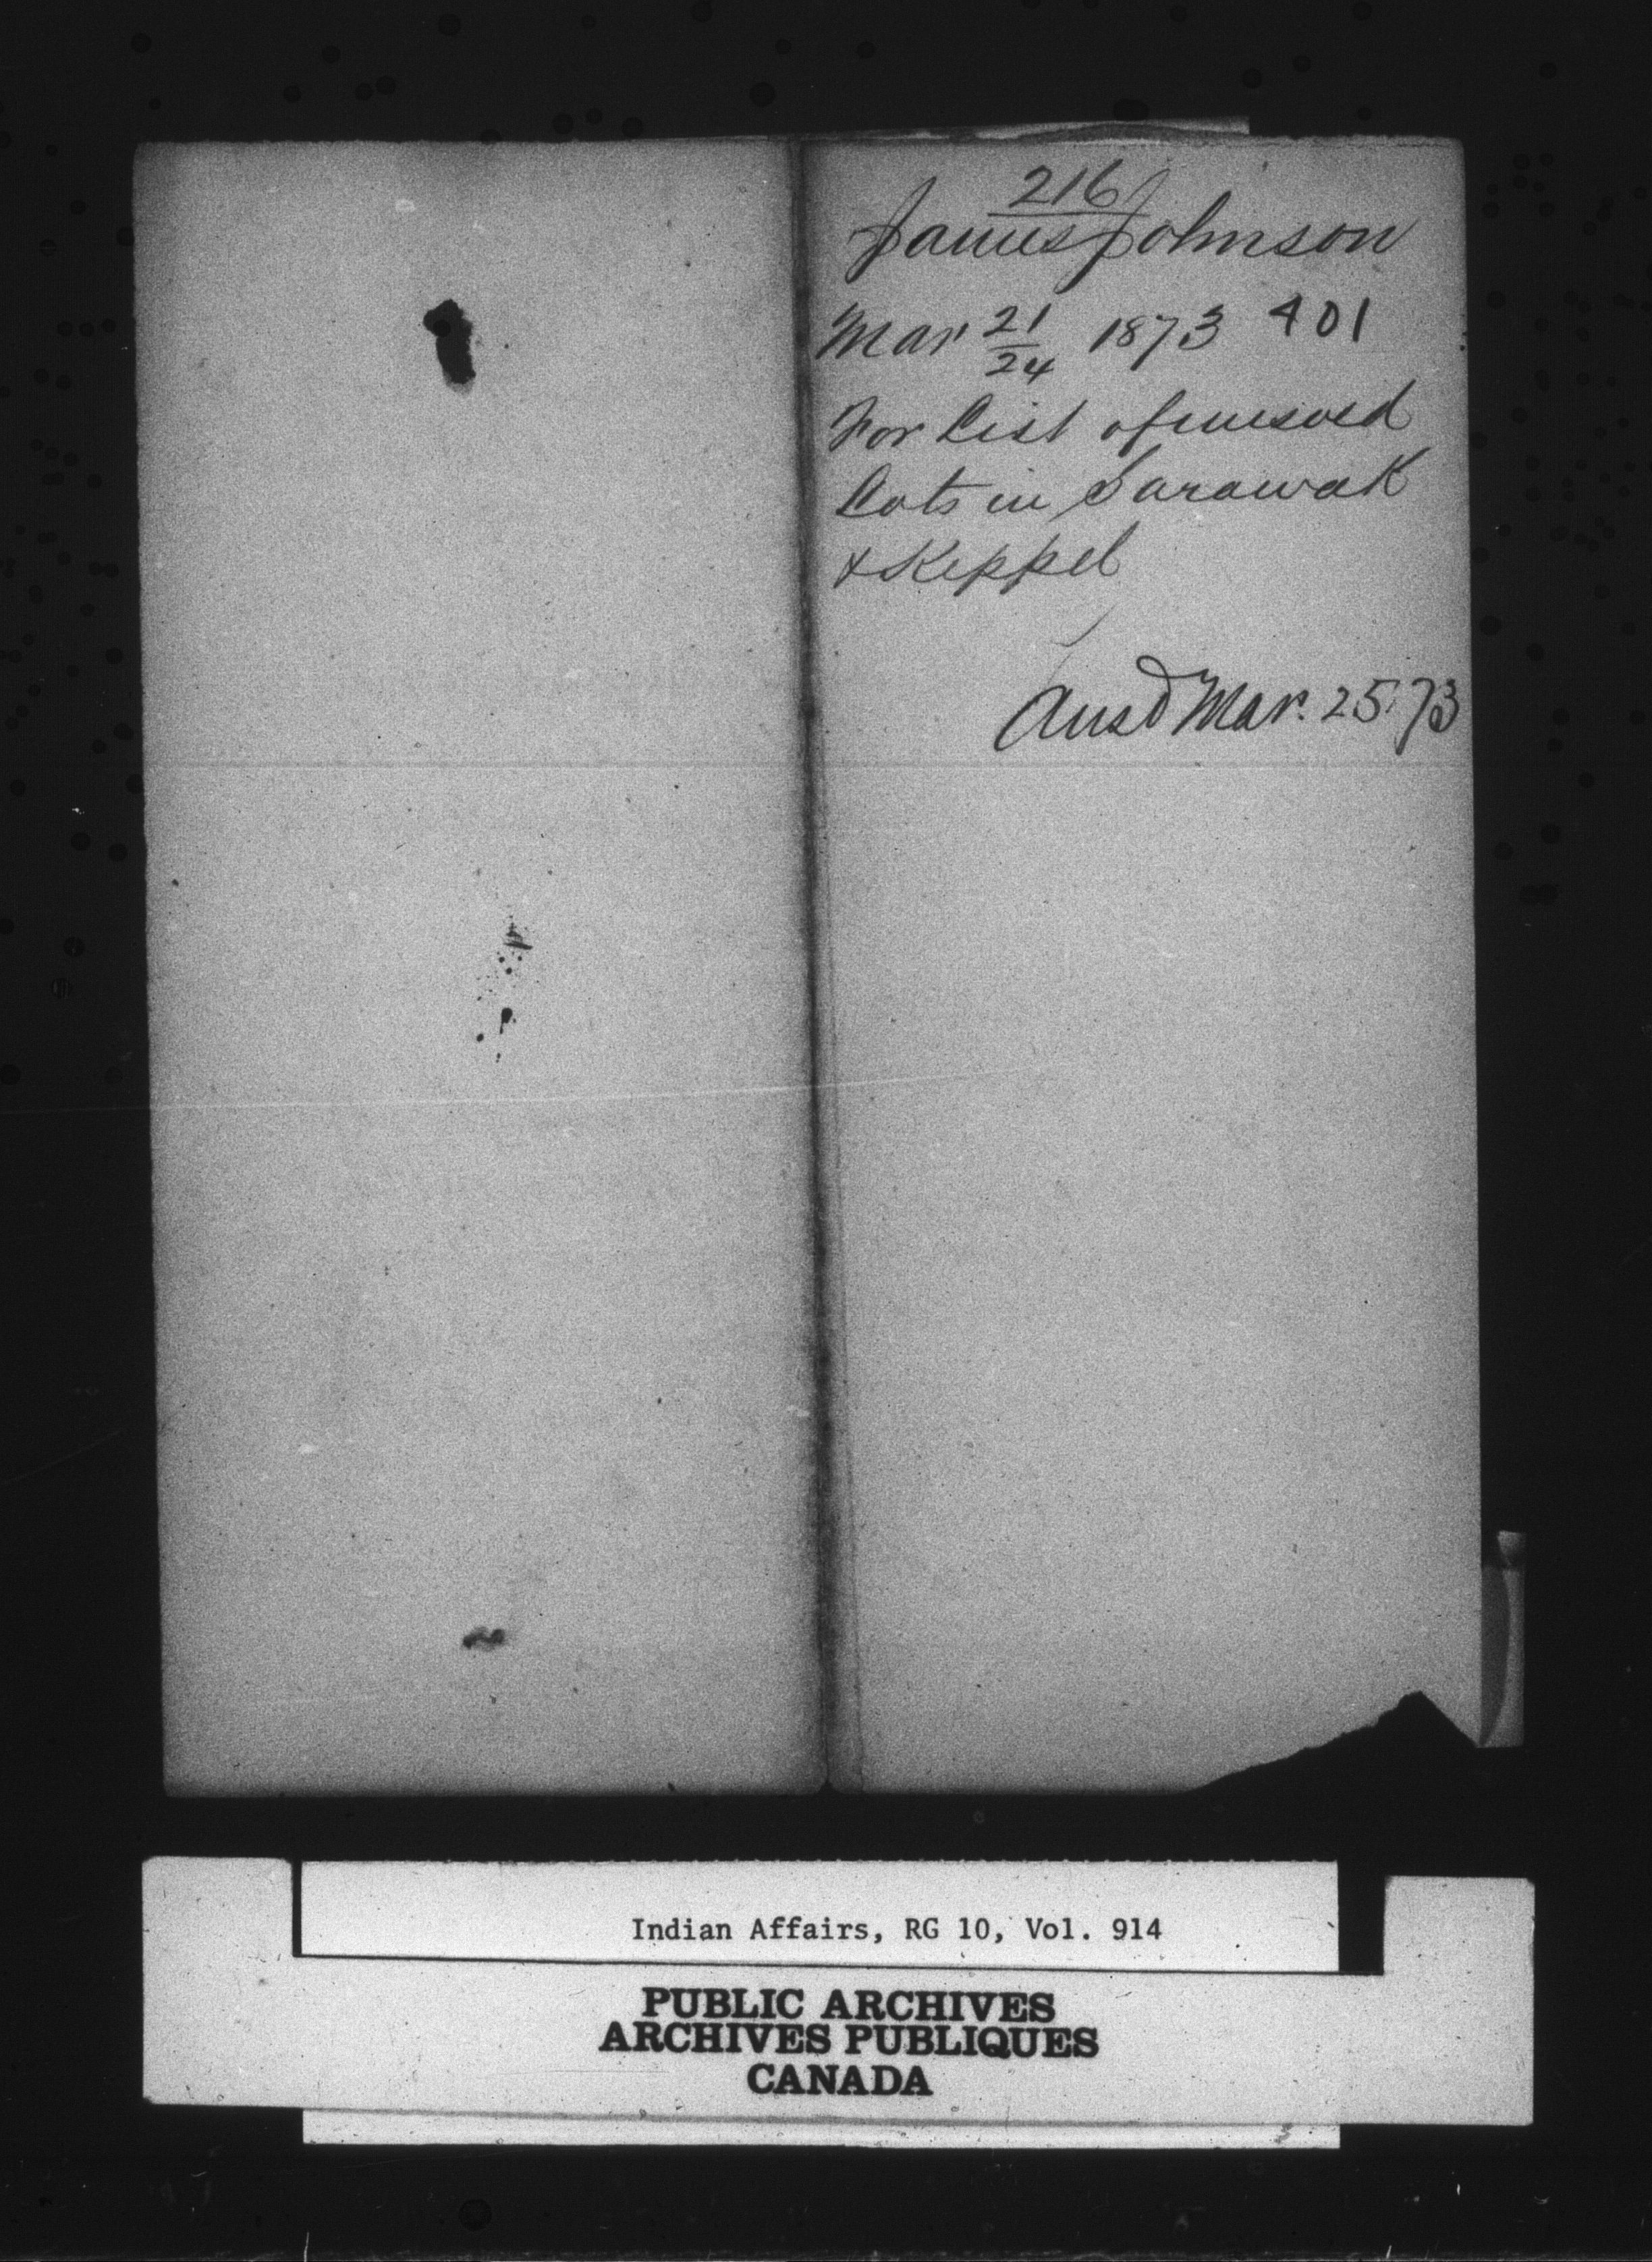 216
James Johnson
Mar 21/24 1873 401
For List of unsold
Lots in Sarawak
& Keppel
Ansd Mar. 25. 73
Indian Affairs, RG 10, Vol. 914
PUBLIC ARCHIVES
ARCHIVES PUBLIQUES
CANADA